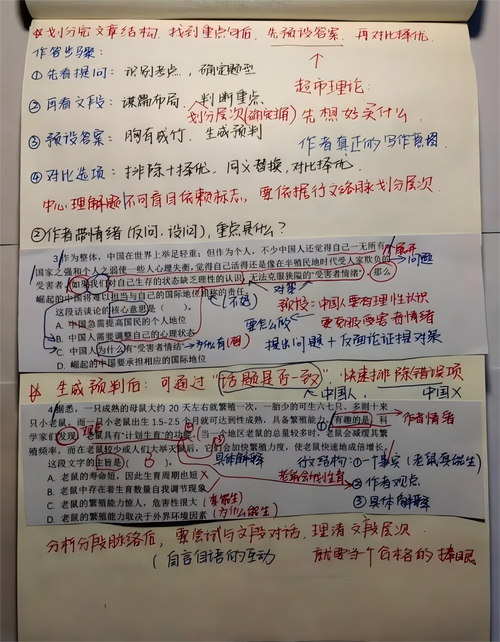 划分完文章结构,找到重点句后,先预设答案,再对比择优.
作答步骤:
①先看提问:识别考点,确定题型
超市理论:
②再看文段:谋篇布局、判断重点
划分层次(确定主旨)
先想好买什么
③预设答案:胸有成竹,生成预判
作者真正的写作意图
④对比选项:排除+择优,同义替换,对比择优.
中心理解题不可盲目依赖标志,要依据行文脉络划分层次
②作者带情绪(反问.设问),重点是什么?
3.作为整体,中国在世界上举足轻重;但作为个人,不少中国人还觉得自己一无所有
国家之强和个人之弱使一些人心理失衡,觉得自己活得还是像在半殖民时代受人家欺负的
受害者。如果我们对自己生存的状态缺乏理性的认识,无法克服狭隘的“受害者情绪”,那么
崛起的中国将难以担当与自己的国际地位相称的责任。
问题
对策
这段话谈论的核心意思是( )。
(不好)
教授:中国人要有理性认识
A. 中国急需提高国民的个人地位
要怎么做
B. 中国人需要调整自己的心理状态
C. 中国人为什么有“受害者情绪”
提出问题+反面论证提对策
D. 崛起的中国要承担相应的国际地位
生成预判后,可通过“话题是否一致”,快速排除错误项
中国人,
中国X
4.据悉,一只成熟的母鼠大约20天左右就繁殖一次,一胎少的可生六七只,多则十来
只小老鼠,而一只小老鼠出生1.5-2.5个月就可达到性成熟,具备繁殖能力。有趣的是,科
学家们发现,老鼠具有“计划生育”的功能。当一个地区老鼠的总量较多时,老鼠会减慢其繁
殖频率,而在老鼠较少或人们大举灭鼠后,它们会加快繁殖力度,使老鼠快速地成倍增长。
作者情绪
这段文字的主旨是( )。
具体解释
行文结构:①一个事实(老鼠真能生)
A. 老鼠的寿命短,因此生育周期也短X
老鼠会计划生育
②作者观点
B. 老鼠中存在着生育数量自我调节现象
C. 老鼠的繁殖能力惊人,危害性很大
(真能生)
③具体解释
D. 老鼠的繁殖能力取决于外界环境因素
(为什么能生)
分析分段脉络后,要尝试与文段对话,理清文段层次.
(自言自语的互动
就要当个合格的捧哏